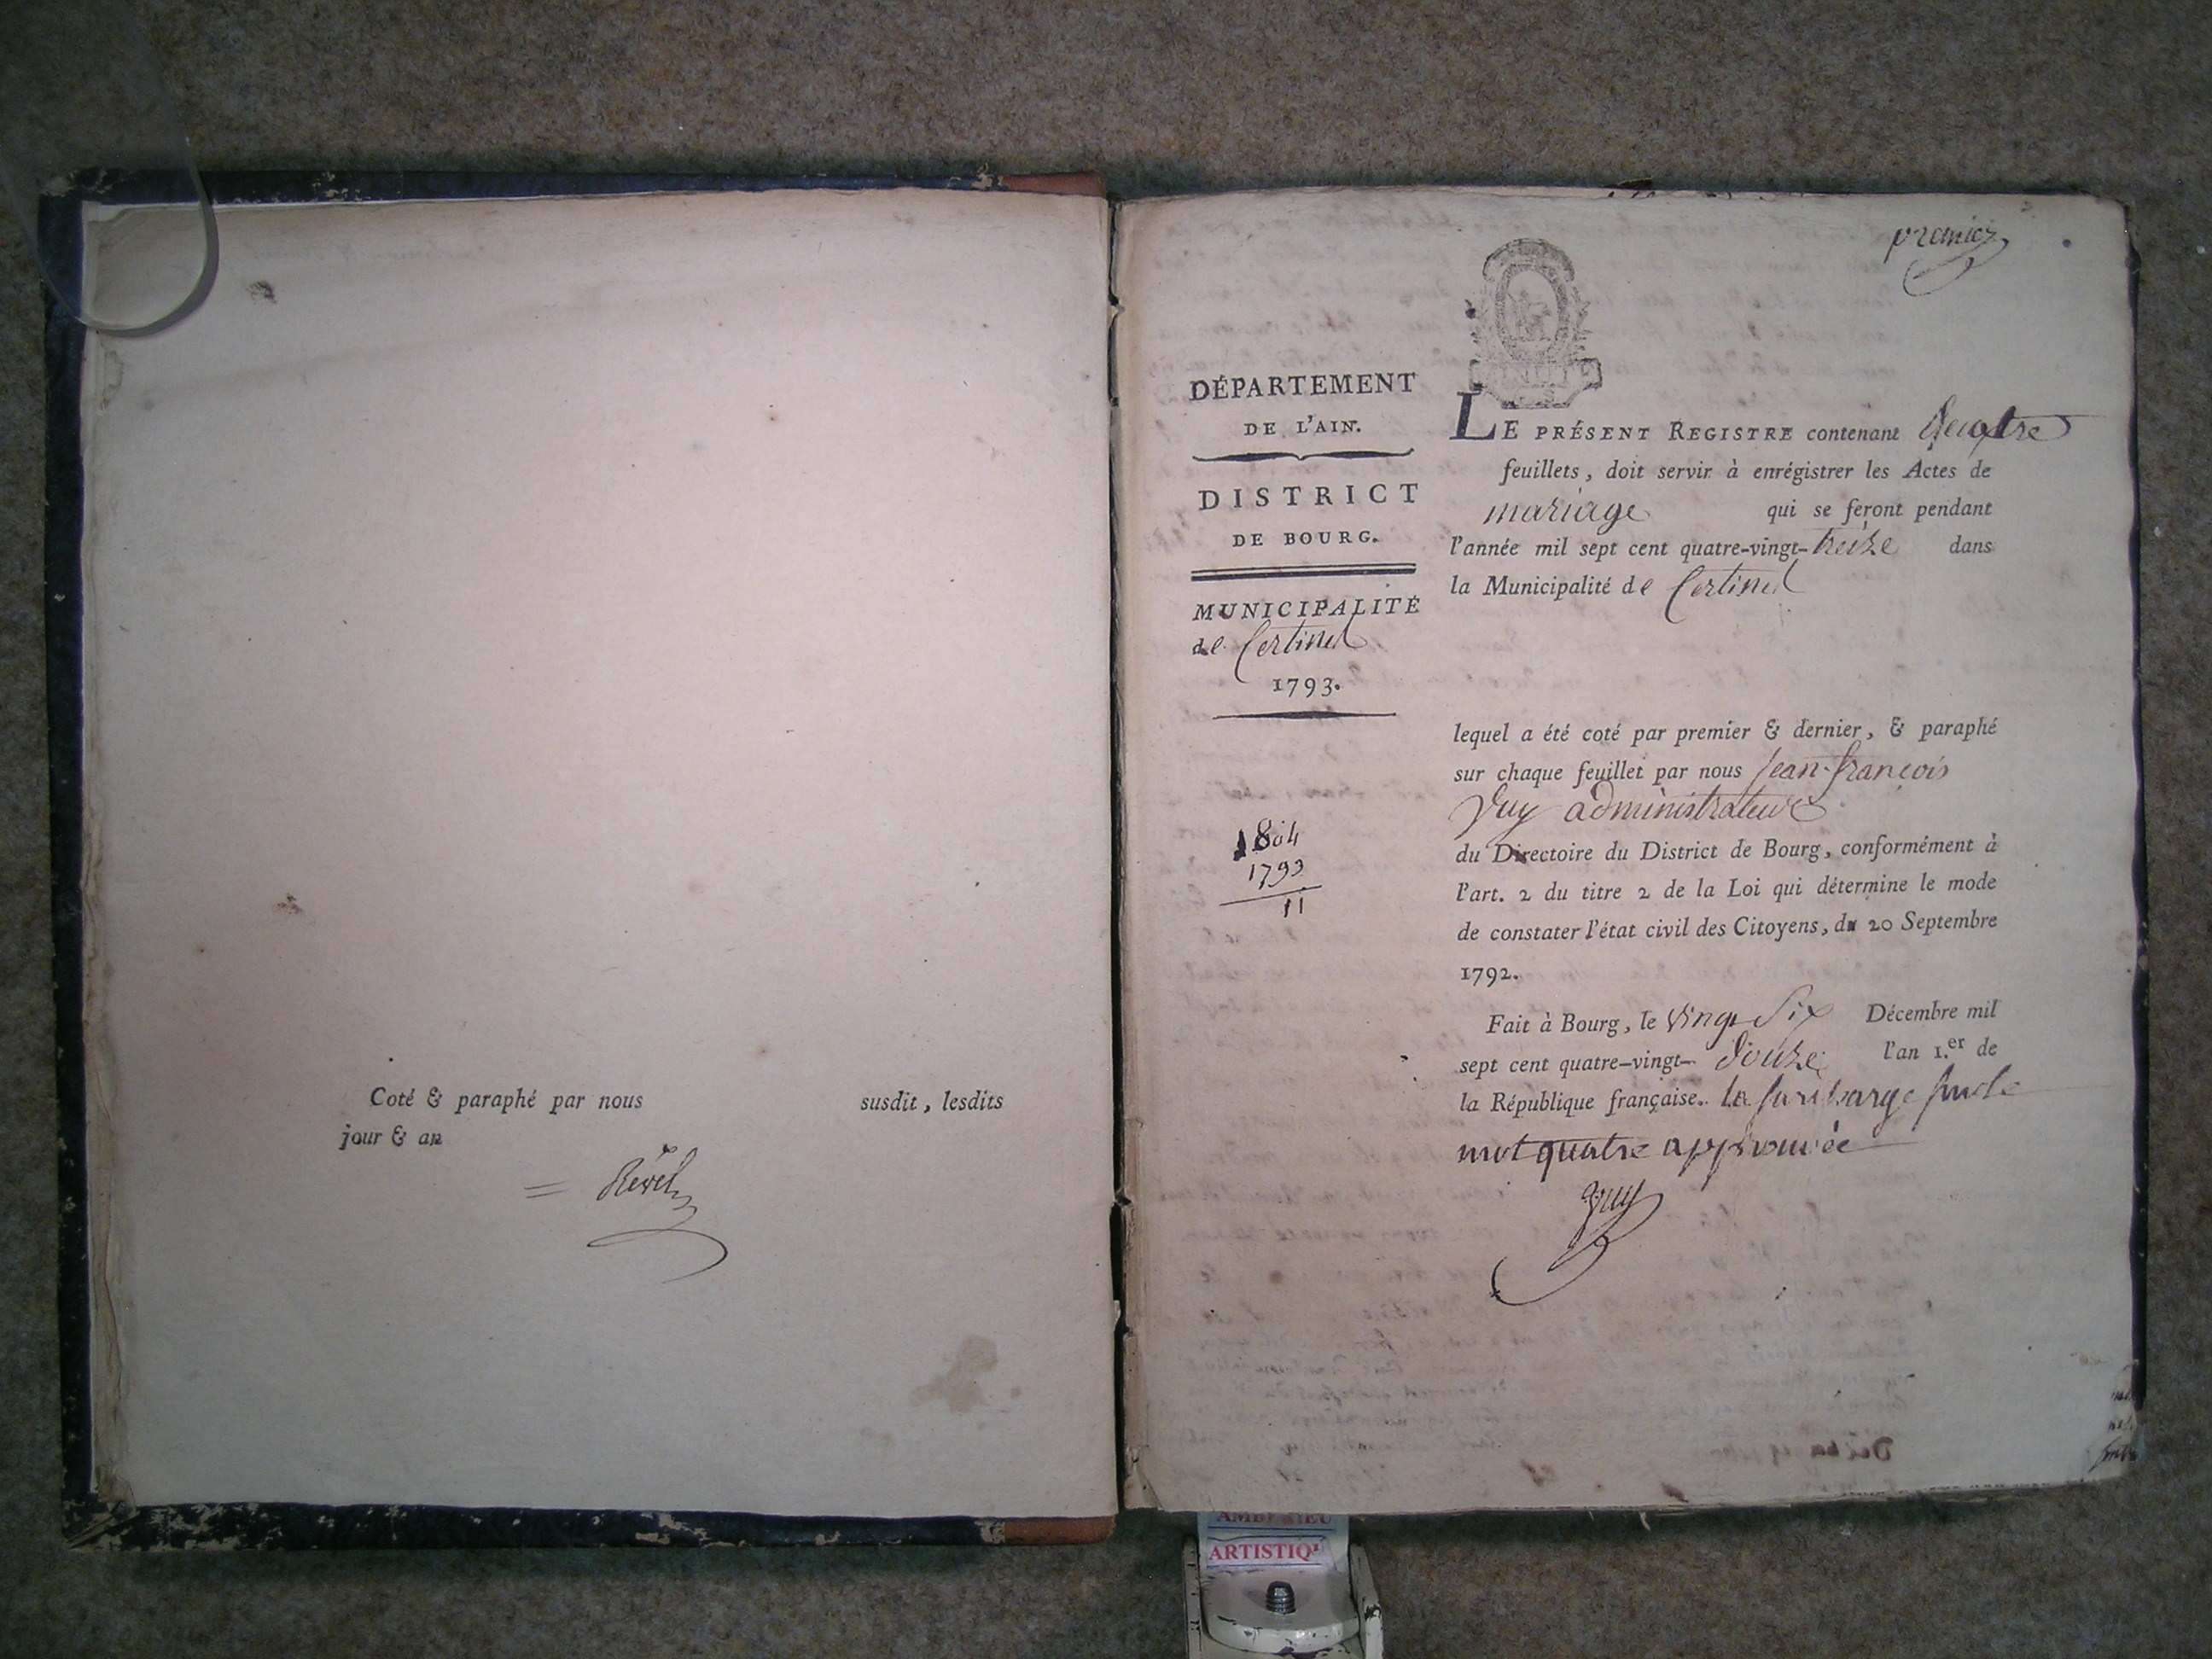 Coté & paraphé par nous susdit, lesdits
jour & an
= Revel
premier
DÉPARTEMENT
DE L'AIN.
DISTRICT
DE BOURG.
MUNICIPALITÉ
de Certines
1793.
1804
1793
11
LE PRÉSENT REGISTRE contenant quatre
feuillets, doit servir à enrégistrer les Actes de
mariage qui se feront pendant
l'année mil sept cent quatre-vingt-treize dans
la Municipalité de Certines
lequel a été coté par premier & dernier, & paraphé
sur chaque feuillet par nous jean-françois
puy administrateur
du Directoire du District de Bourg, conformément à
l'art. 2 du titre 2 de la Loi qui détermine le mode
de constater l'état civil des Citoyens, du 20 Septembre
1792.
Fait à Bourg, le vingt Six Décembre mil
sept cent quatre-vingt- douze l'an 1.er de
la République française. la surcharge sur le
mot quatre approuvée
puy
AMBERIEU
ARTISTIQ